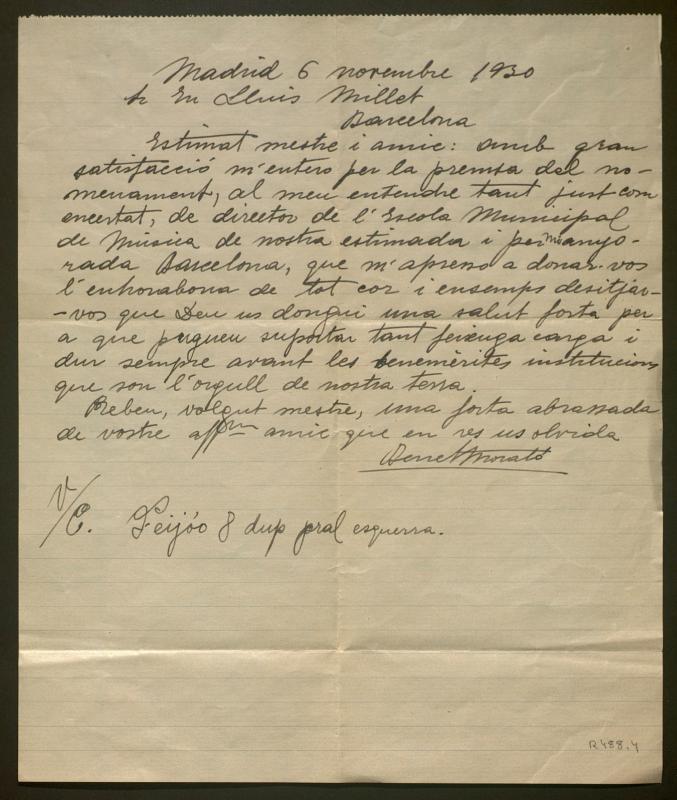 Madrid 6 novembre 1930
A En Lluis Millet
Barcelona
Estimat mestre i amic: amb gran
satisfacció m'entero per la premsa del no-
menament, al meu entendre tant just com
encertat, de director de l'Escola Municipal
de Música de nostra estimada i per mi anyo-
rada Barcelona, que m'apreso a donar-vos
l'enhorabona de tot cor i ensemps desitjar-
-vos que Deu us dongui una salut forta per
a que pugueu suportar tant feixuga carga i
dur sempre avant les benemèrites institucions
que son l'orgull de nostra terra.
Rebeu, volgut mestre, una forta abrassada
de vostre affm amic que en res us olvida
Benet Morató
V/C. Feijóo 8 dup pral esquerra.
R 488.4